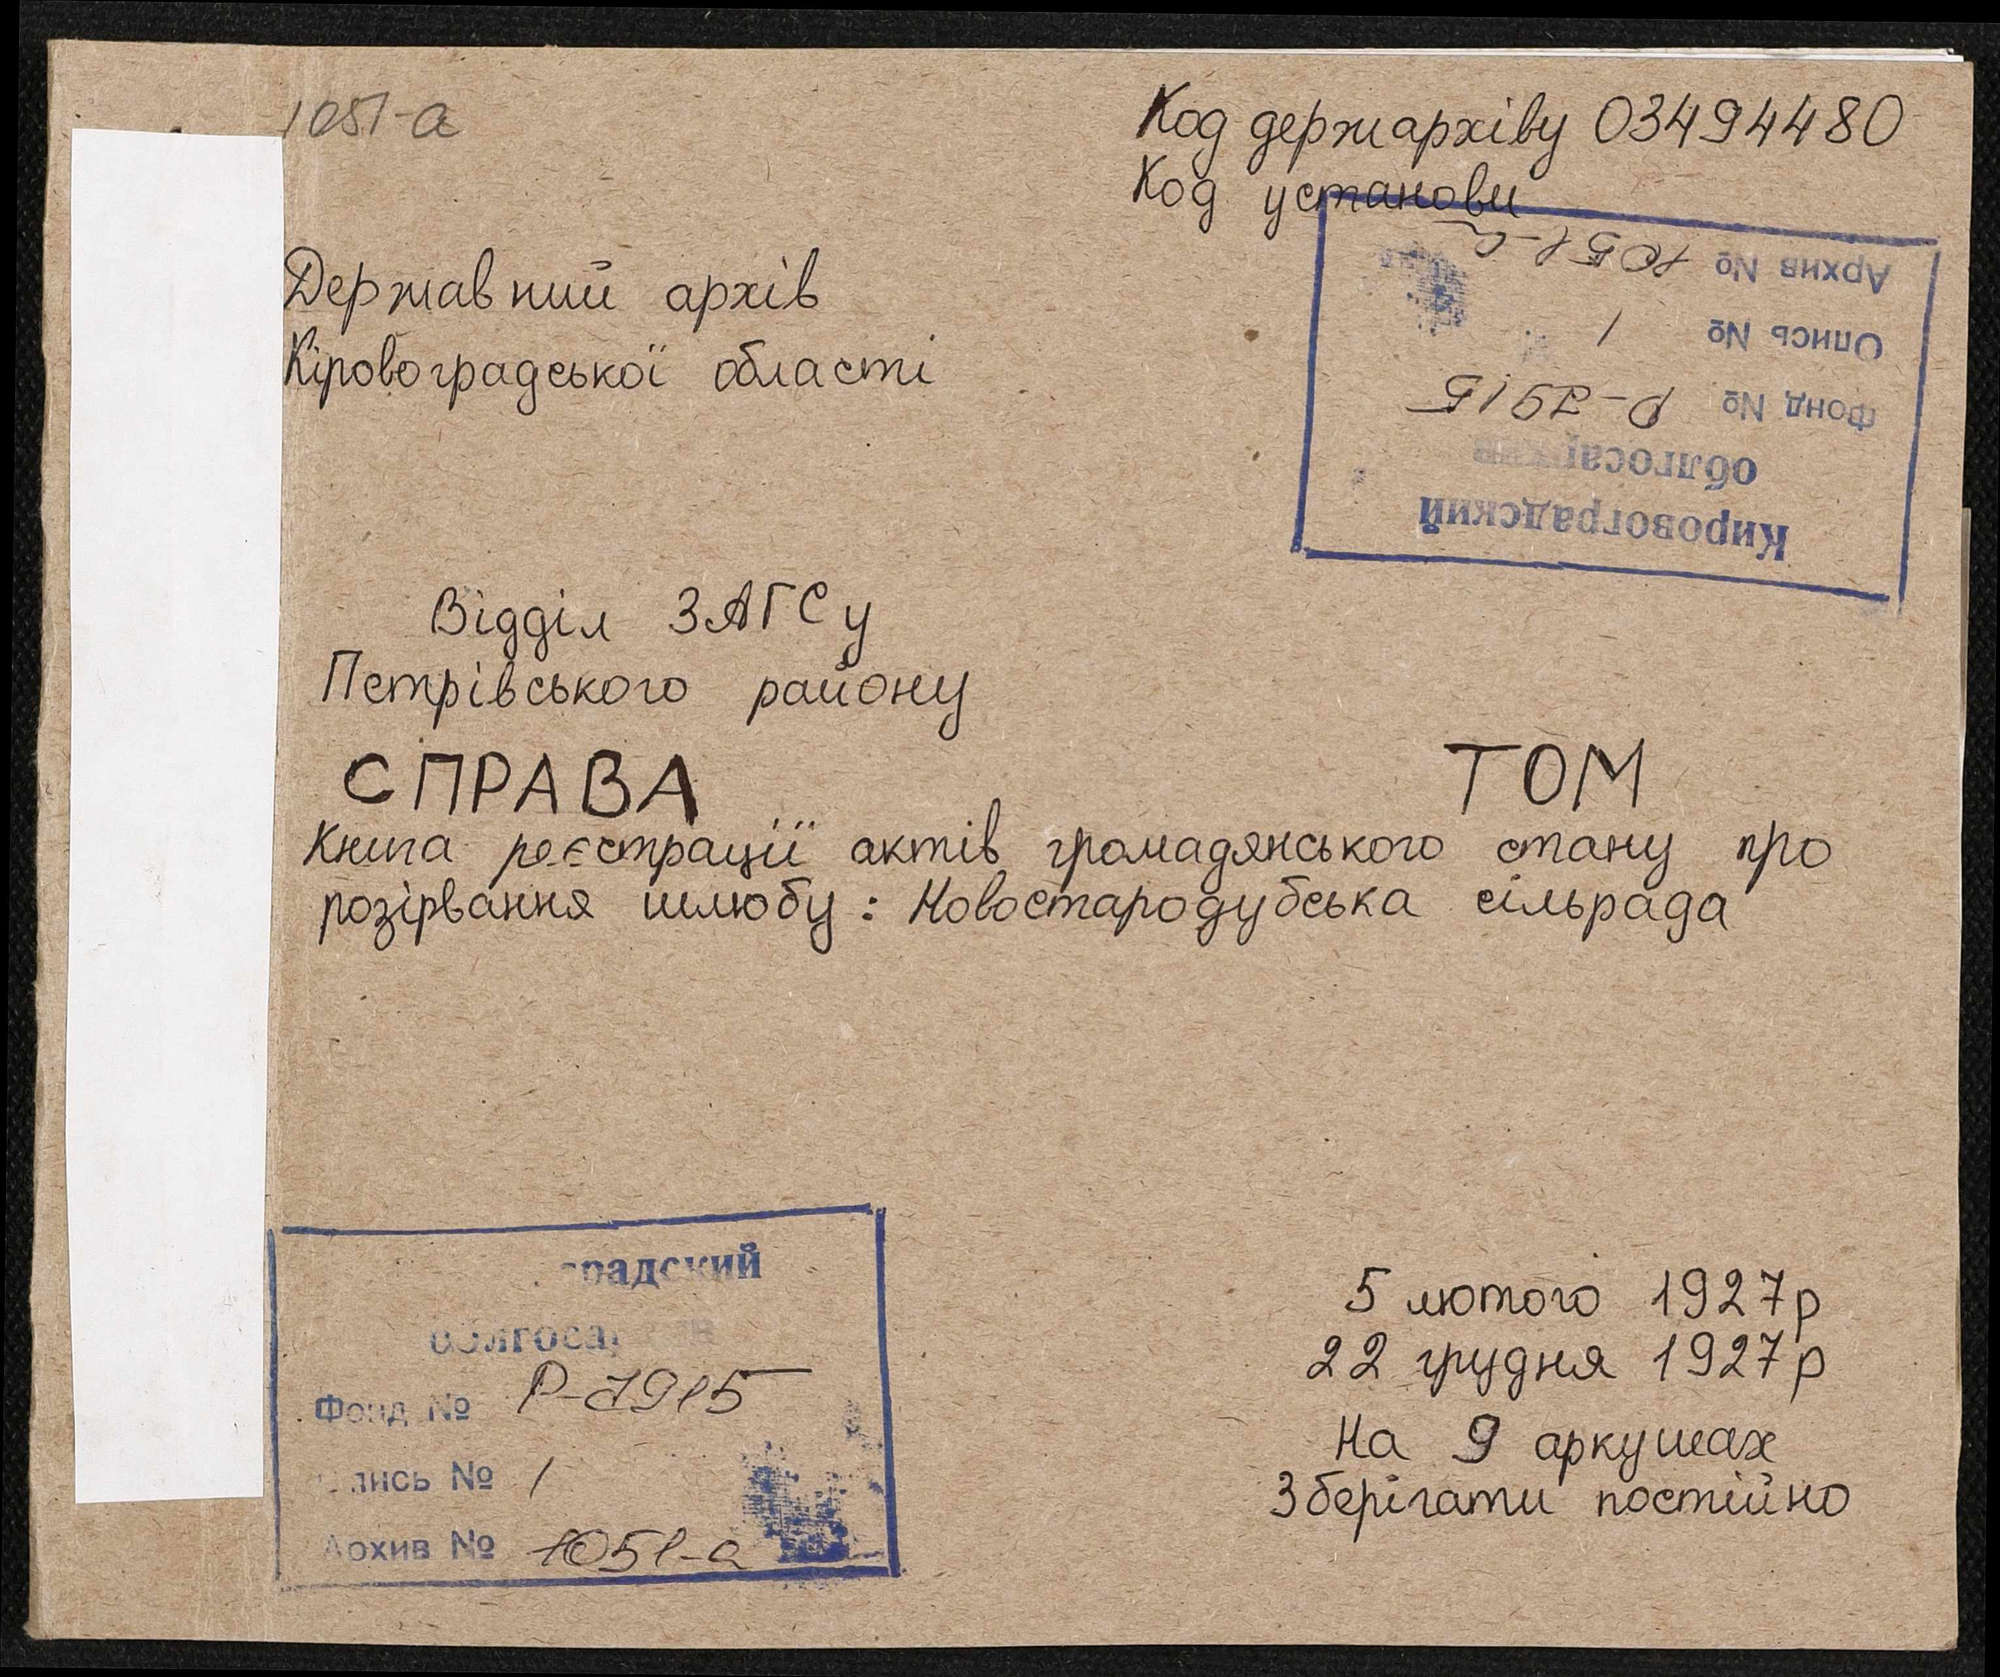 1051-а
Код держархіву 03494480
Код установи
Державний архів
Кіровоградської області
Кировоградский
облгосархив
Фонд № Р-7915
Опись № 1
Архив № 1051-а
Відділ ЗАГСу
Петрівського району
СПРАВА ТОМ
Книга реєстрації актів громадянського стану про
розірвання шлюбу: Новостародубська сільрада
градский
облгосархив
Фонд № Р-7915
Опись № 1
Архив № 1051-а
5 лютого 1927р
22 грудня 1927р
На 9 аркушах
Зберігати постійно